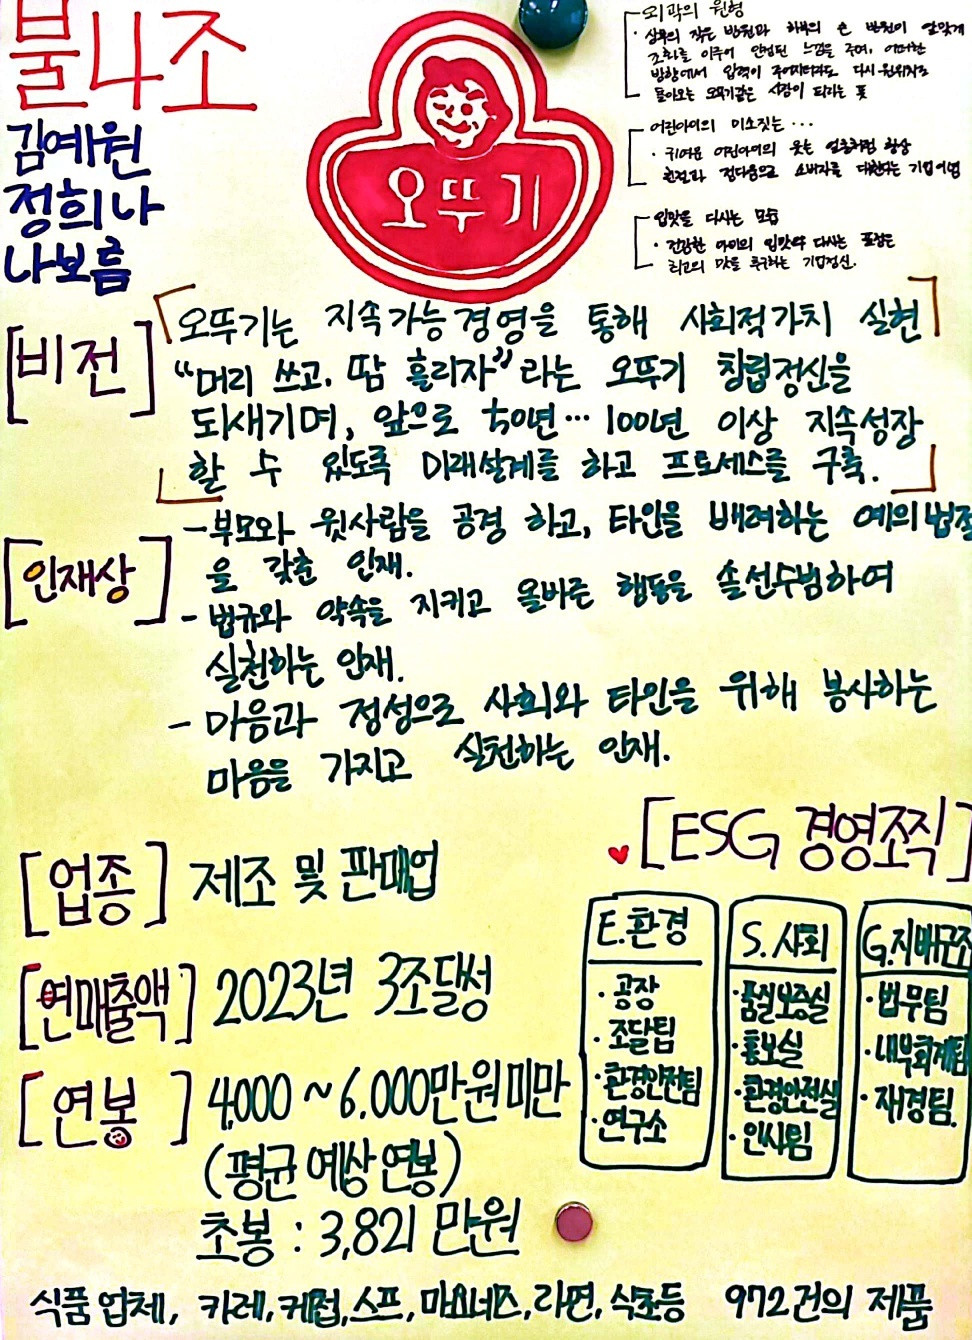 불나조
김예원
정희나
나보름
오뚜기
외곽의 원형
· 상부의 작은 방원과 하부의 큰 방원이 알맞게
조화를 이루어 안정된 느낌을 주며, 어떠한
방향에서 압력이 주어지더라도 다시 원위치로
돌아오는 오뚜기같은 사람이 되라는 뜻
어린아이의 미소짓는 ...
· 귀여운 어린아이의 웃는 얼굴처럼 항상
친절과 정다움으로 소비자를 대한다는 기업이념
입맛을 다시는 모습
· 건강한 아이의 입맛 다시는 표정은
최고의 맛을 추구하는 기업정신.
[비전]
오뚜기는 지속가능경영을 통해 사회적가치 실현
"머리 쓰고. 땀 흘리자"라는 오뚜기 창립정신을
되새기며, 앞으로 50년... 100년 이상 지속성장
할 수 있도록 미래설계를 하고 프로세스를 구축.
[인재상]
- 부모와 윗사람을 공경 하고, 타인을 배려하는 예의범절
을 갖춘 인재.
- 법규와 약속을 지키고 올바른 행동을 솔선수범하여
실천하는 인재.
- 마음과 정성으로 사회와 타인을 위해 봉사하는
마음을 가지고 실천하는 인재.
[업종] 제조 및 판매업
[연매출액] 2023년 3조달성
[연봉] 4,000 ~ 6,000만원미만
(평균 예상 연봉)
초봉 : 3,821 만원
♥ [ESG 경영조직]
E.환경
· 공장
· 조달팀
· 환경안전팀
· 연구소
S.사회
· 품질보증실
· 홍보실
· 환경안전실
· 인사팀
G.지배구조
· 법무팀
· 내부회계팀
· 재경팀.
식품 업체, 카레, 케찹, 스프, 마요네즈, 라면, 식초등 972건의 제품